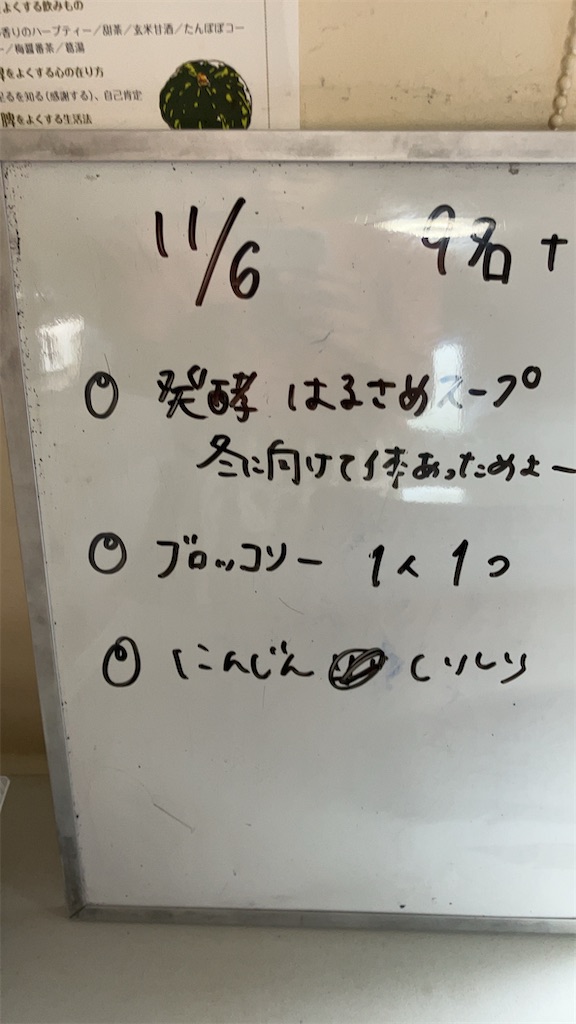 よくする飲みもの
香りのハーブティー／甜茶／玄米甘酒／たんぽぽコー
ー／梅醤番茶／葛湯
脾をよくする心の在り方
足るを知る(感謝する)、自己肯定
脾をよくする生活法
11/6 9名+
発酵 はるさめスープ
冬に向けて体あっためよー
ブロッコリー 1人1つ
にんじん しりしり